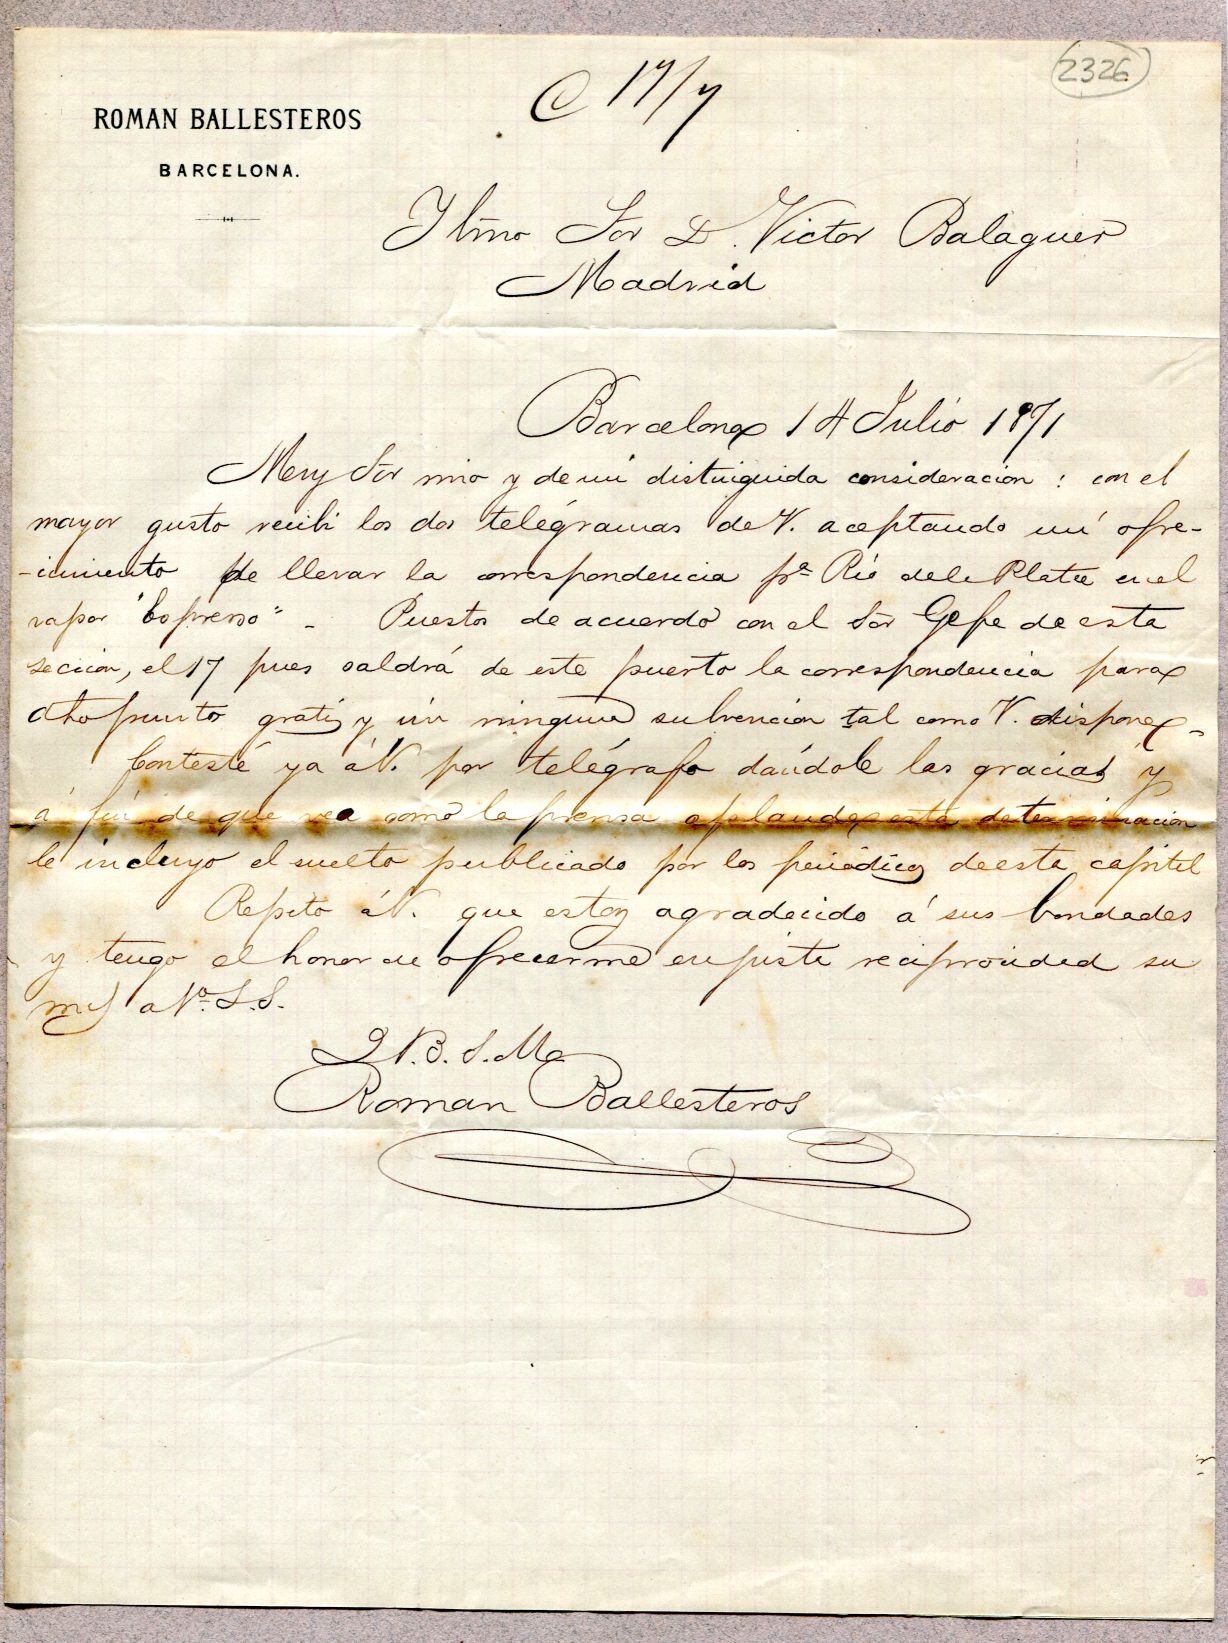 2326
C 17/7
ROMAN BALLESTEROS
BARCELONA.
Ylmo Sor D. Victor Balaguer
Madrid
Barcelona 14 Julio 1871
Muy Sor mio y de mi distinguida consideracion: con el
mayor gusto recibi los dos telégramas de V. aceptando mi ofre-
-cimiento de llevar la correspondencia pa Rio de la Plata en el
vapor "Espresso" - Puestos de acuerdo con el Sor Gefe de esta
seccion, el 17 pues saldrá de este puerto la correspondencia para
dho punto gratis y sin ninguna subvencion tal como V. dispone -
Contesté ya á V. por telégrafo dándole las gracias y
á fin de que vea como la prensa aplaude esta determinacion
le incluyo el suelto publicado por los periódicos de esta capital
Repito á V. que estoy agradecido á sus bondades
y tengo el honor de ofrecerme en justa reciprocidad su
mas a V. S.S.
Q.B.S.M.
Roman Ballesteros